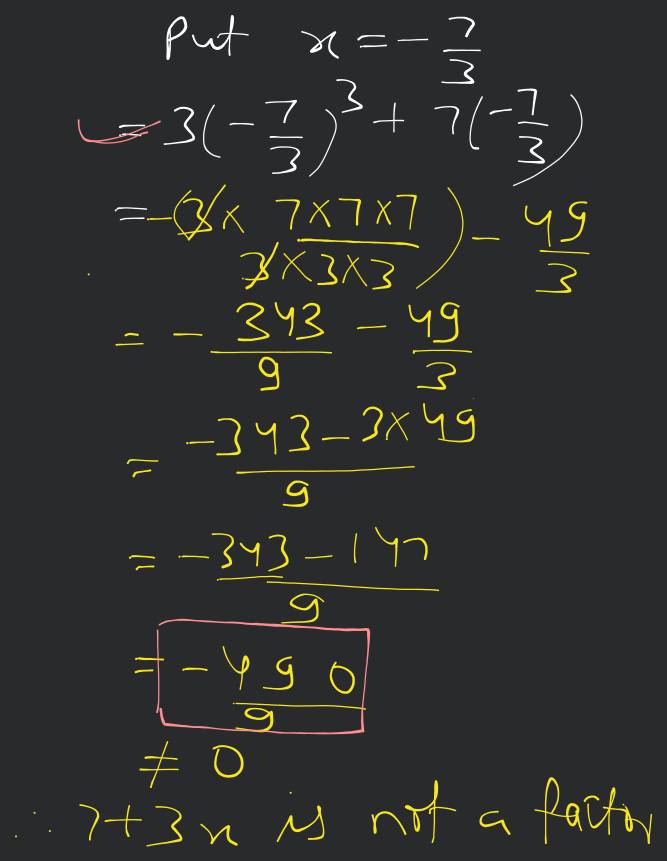 Put x = -7/3
= 3(-7/3)^3 + 7(-7/3)
= -(3 × 7×7×7 / 3×3×3) - 49/3
= - 343/9 - 49/3
= -343 - 3×49 / 9
= -343 - 147 / 9
= -490/9
≠ 0
∴ 7+3x is not a factor